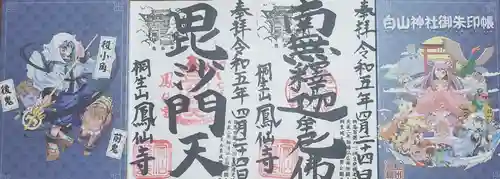 役小角
後鬼
前鬼
奉拝 令和五年四月二十四日
毘沙門天
桐生山 鳳仙寺
奉拝 令和五年四月二十四日
南無釋迦尼佛
桐生山 鳳仙寺
白山神社御朱印帳